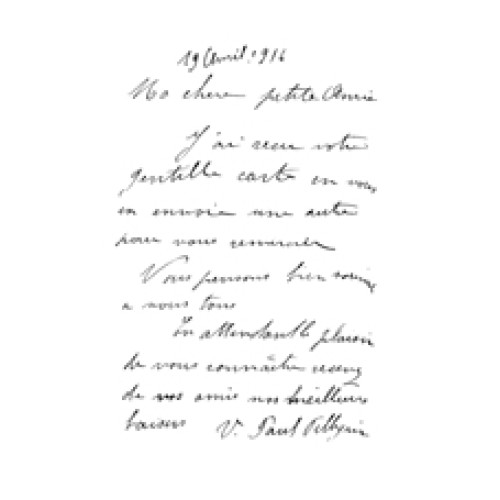 19 Avril 1916
Ma chere petite Amie
J'ai recu votre
gentille carte en vous
en envoie une autre
pour vous remercier
Vous pensons bien
a vous tous
En attendant le plaisir
de vous connaître recevez
de nos amis nos meilleurs
baisers V. Paul